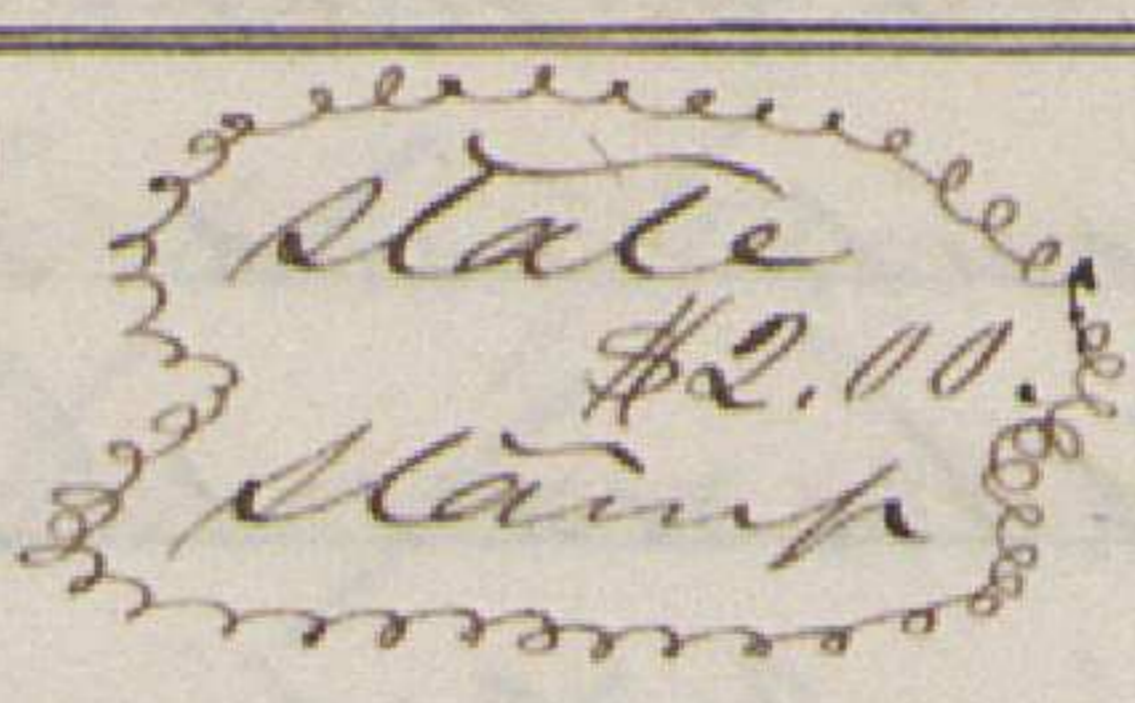 State
$2.00.
Stamp